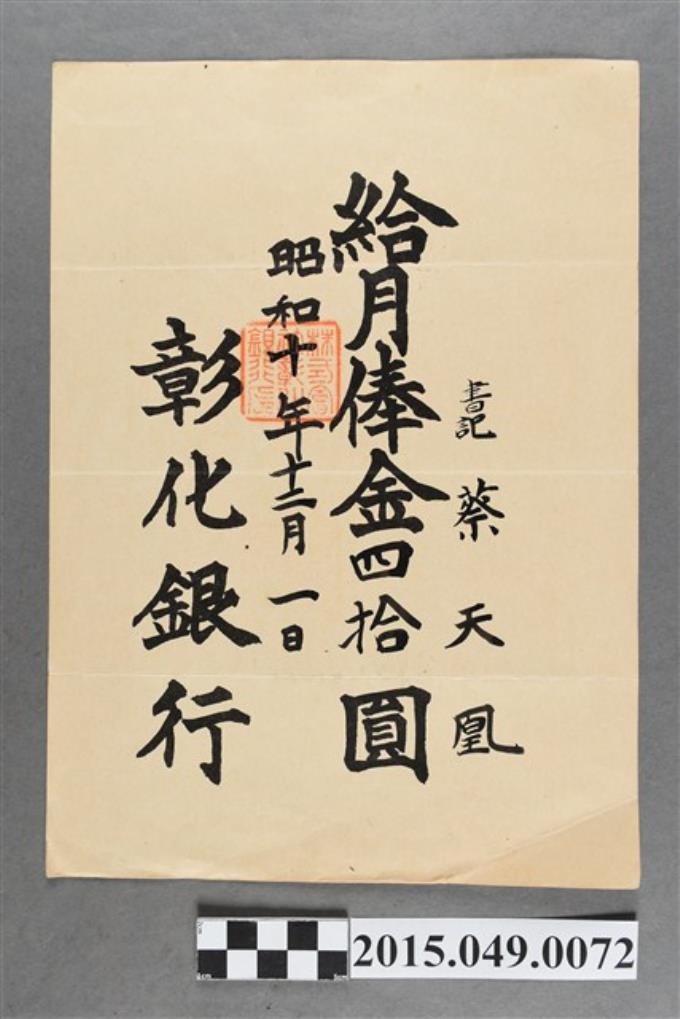 書記 蔡天凰
給月俸金四拾圓
昭和十年十二月一日
彰化銀行
2015.049.0072